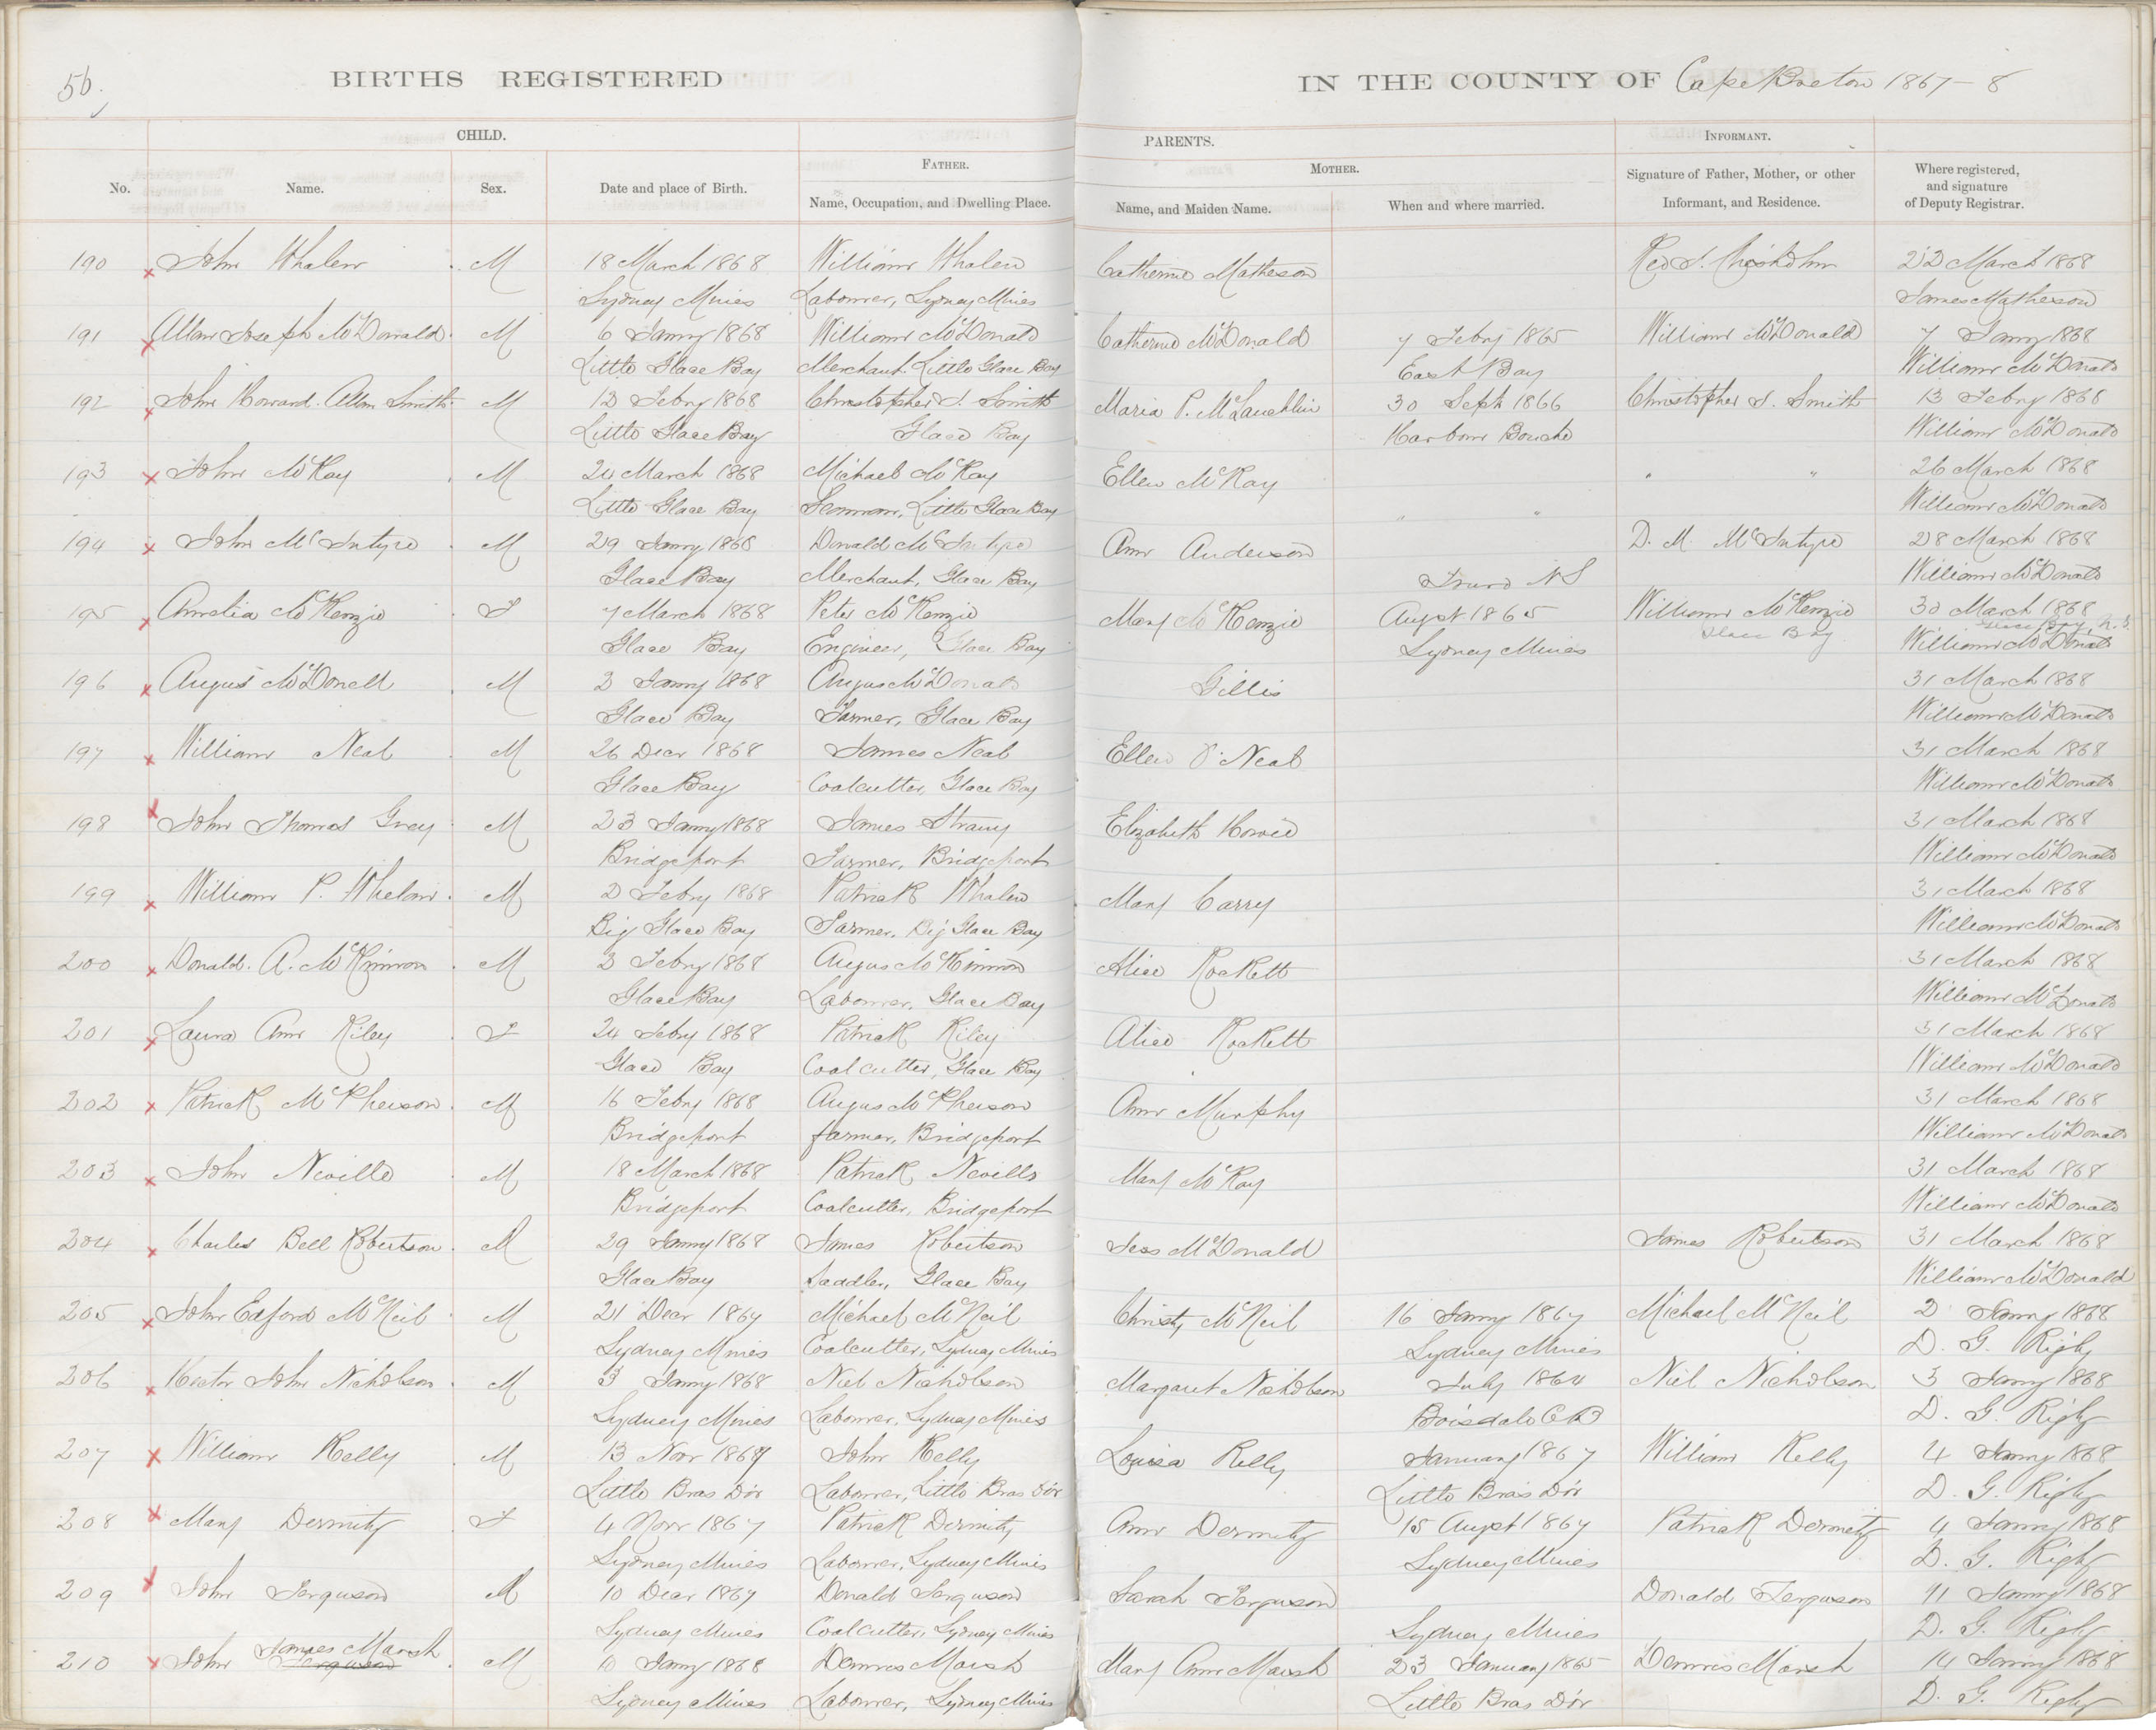 56.
BIRTHS REGISTERED
IN THE COUNTY OF Cape Breton 1867-8
CHILD.
PARENTS.
INFORMANT.
FATHER.
MOTHER.
No. Name. Sex. Date and place of Birth. Name, Occupation, and Dwelling Place. Name, and Maiden Name. When and where married. Signature of Father, Mother, or other Informant, and Residence. Where registered, and signature of Deputy Registrar.
190 John Whalen M 18 March 1868 William Whalen Catherine Matheson 22 March 1868
Sydney Mines Labourer, Sydney Mines James Matheson
191 Allan Joseph McDonald M 6 Janry 1868 William McDonald Catherine McDonald 7 Febry 1865 William McDonald 7 Janry 1868
Little Glace Bay Merchant. Little Glace Bay East Bay William McDonald
192 John Howard Allan Smith M 12 Febry 1868 Christopher S. Smith Maria P. McLauchlin 30 Sept 1866 Christopher S. Smith 13 Febry 1868
Little Glace Bay Glace Bay Harbour Bouche William McDonald
193 John McKay M 24 March 1868 Michael McKay Ellen McKay " " 26 March 1868
Little Glace Bay Little Glace Bay " " William McDonald
194 John McIntyre M 29 Janry 1868 Donald McIntyre Ann Anderson D. M. McIntyre 28 March 1868
Glace Bay Merchant, Glace Bay Truro NS William McDonald
195 Amelia McKenzie F 7 March 1868 Peter McKenzie Mary McKenzie Augst 1865 William McKenzie 30 March 1868
Glace Bay Engineer, Glace Bay Sydney Mines Glace Bay Glace Bay, N.S. William McDonald
196 Angus McDonell M 3 Janry 1868 Angus McDonald Gillis 31 March 1868
Glace Bay Farmer, Glace Bay William McDonald
197 William Neal M 26 Decr 1868 James Neal Ellen O'Neal 31 March 1868
Glace Bay Coalcutter, Glace Bay William McDonald
198 John Thomas Grey M 23 Janry 1868 James Elizabeth Howie 31 March 1868
Bridgeport Farmer, Bridgeport William McDonald
199 William P. Whelan M 2 Febry 1868 Patrick Whalen Mary Carry 31 March 1868
Big Glace Bay Farmer, Big Glace Bay William McDonald
200 Donald. A. McKinnon M 3 Febry 1868 Angus McKinnon Alice Rockett 31 March 1868
Glace Bay Labourer, Glace Bay William McDonald
201 Laura Ann Riley F 24 Febry 1868 Patrick Riley Alice Rockett 31 March 1868
Glace Bay Coal cutter, Glace Bay William McDonald
202 Patrick McPherson M 16 Febry 1868 Angus McPherson Ann Murphy 31 March 1868
Bridgeport farmer, Bridgeport William McDonald
203 John Neville M 18 March 1868 Patrick Neville Mary McKay 31 March 1868
Bridgeport Coalcutter, Bridgeport William McDonald
204 Charles Bell Robertson M 29 Janry 1868 James Robertson Jess McDonald James Robertson 31 March 1868
Glace Bay Saddler, Glace Bay William McDonald
205 John Exford McNeil M 21 Decr 1867 Michael McNeil Christy McNeil 16 Janry 1867 Michael McNeil 2 Janry 1868
Sydney Mines Coalcutter, Sydney Mines Sydney Mines D. G. Rigby
206 Hector John Nicholson M 3 Janry 1868 Niel Nicholson Margaret Nicholson July 1864 Niel Nicholson 3 Janry 1868
Sydney Mines Labourer, Sydney Mines Boisdale CB D. G. Rigby
207 William Kelly M 13 Novr 1867 John Kelly Louisa Kelly January 1867 William Kelly 4 Janry 1868
Little Bras D'or Labourer, Little Bras D'or Little Bras D'or D. G. Rigby
208 Mary Dermity F 4 Novr 1867 Patrick Dermity Ann Dermity 15 Augst 1867 Patrick Dermity 4 Janry 1868
Sydney Mines Labourer, Sydney Mines Sydney Mines D. G. Rigby
209 John Ferguson M 10 Decr 1867 Donald Ferguson Sarah Ferguson Donald Ferguson 11 Janry 1868
Sydney Mines Coalcutter, Sydney Mines Sydney Mines D. G. Rigby
210 John James Marsh Ferguson M 10 Janry 1868 Dennis Marsh Mary Ann Marsh 23 January 1865 Dennis Marsh 14 Janry 1868
Sydney Mines Labourer, Sydney Mines Little Bras D'or D. G. Rigby